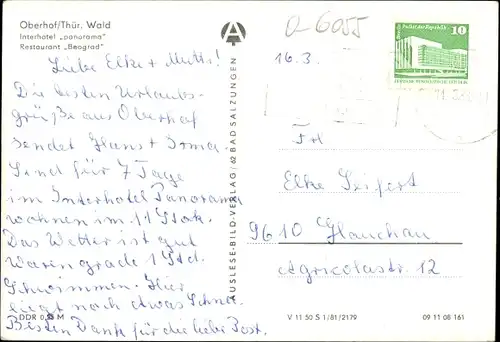 Oberhof/Thür. Wald
Interhotel „panorama"
Restaurant „Beograd"
Liebe Elke + Mutti!
Die besten Urlaubs-
grüße aus Oberhof
sendet Hans + Irma.
Sind für 7 Tage
im Interhotel Panorama
wohnen im 11 Stok.
Das Wetter ist gut
Waren grade 1 Std.
Schwimmen. Hier
liegt noch etwas Schnee.
Besten Dank für die liebe Post.
DDR 0, M
AUSLESE-BILD-VERLAG/62 BAD SALZUNGEN
A
0-6055
16.3.
10
Frl
Elke Seifert
9610 Glauchau
Agricolastr. 12
V 11 50 S 1/81/2179
09 11 08 161